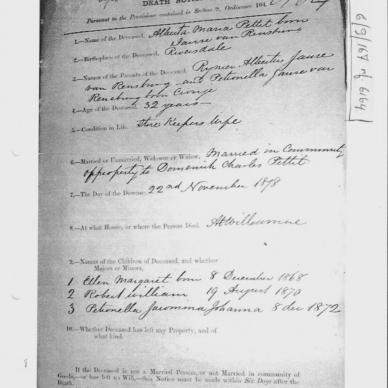 DEATH NOTICE
Pursuant to the Provisions contained in Section 9, Ordinance 104
1.—Name of the Deceased, Alberta Maria Pettit born
Janse van Rensburg
2.—Birthplace of the Deceased, Riversdale
3.—Names of the Parents of the Deceased, Rynier Albertus Janse
van Rensburg and Petronella Janse van
Rensburg born Cronje
4.—Age of the Deceased, 32 years
5.—Condition in Life, Store Keepers Wife
6.—Married or Unmarried, Widower or Widow, Married in Community
of property to Domenick Charles Pettit
7.—The Day of the Decease, 22nd November 1878
8.—At what House, or where the Person Died, At Willowmore
9.—Names of the Children of Deceased, and whether
Majors or Minors,
1 Ellen Margaret born 8 December 1868
2 Robert William 19 August 1870
3 Petronella Johanna 8 dec 1872
10.—Whether Deceased has left any Property, and of
what kind.
If the Deceased is not a Married Person, or not Married in community of
Goods,—or has left no Will,—this Notice must be made within Six Days after the
Death.